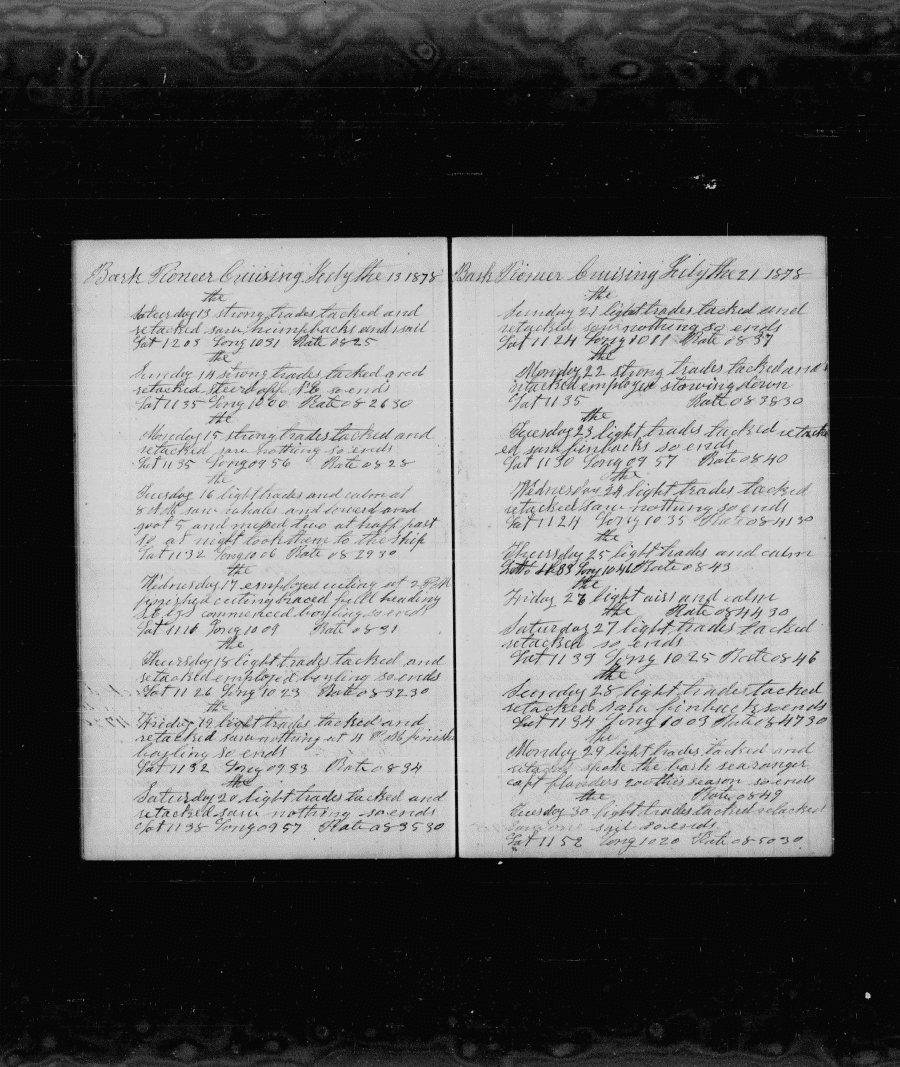 Bark Pioneer Cruising July the 13 1878
the
Saturday 13 strong trades tacked and
retacked saw humpbacks and sail
Lat 1203 Long 1031 Rate 0825
the
Sunday 14 strong trades tacked and
retacked steerd off so ends
Lat 1135 Long 1000 Rate 082630
the
Monday 15 strong trades tacked and
retacked saw nothing so ends
Lat 1135 Long 0956 Rate 0828
the
Tuesday 16 light trades and calm at
8 AM saw whales and lowerd and
goot 5 and mised two at half past
at night took them to the ship
Lat 1132 Long 1006 Rate 082930
the
Wednesday 17 employed cuting at 2 PM
finished cuting braced full heading
commenced boyling so ends
Lat 1116 Long 1009 Rate 0831
the
Thursday 18 light trades tacked and
retacked employed boyling so ends
Lat 1126 Long 1023 Rate 083230
the
Friday 19 light trades tacked and
retacked saw nothing at 4 finish
boyling so ends
Lat 1132 Long 0933 Rate 0834
the
Saturday 20 light trades tacked and
retacked saw nothing so ends
Lat 1138 Long 0957 Rate 083530
Bark Pioneer Cruising July the 21 1878
the
Sunday 21 light trades tacked and
retacked saw nothing so ends
Lat 1124 Long 1011 Rate 0837
the
Monday 22 strong trades tacked and
retacked employed stowing down
Lat 1135 Rate 083830
the
Tuesday 23 light trades tacked retack
ed saw finbacks so ends
Lat 1130 Long 0957 Rate 0840
the
Wednesday 24 light trades tacked
retacked saw nothing so ends
Lat 1124 Long 1035 Rate 084130
the
Thursday 25 light trades and calm
Long 1041 Rate 0843
the
Friday 26 light airs and calm
the Rate 084430
Saturday 27 light trades tacked
retacked so ends
Lat 1139 Long 1025 Rate 0846
the
Sunday 28 light trades tacked
retacked saw finback so ends
Lat 1134 Long 1003 Rate 084730
the
Monday 29 light trades tacked and
retacked spoke the bark searanger
capt flanders this season so ends
the Rate 0849
Tuesday 30 light trades tacked retacked
saw one sail so ends
Lat 1152 Long 1020 Rate 085030